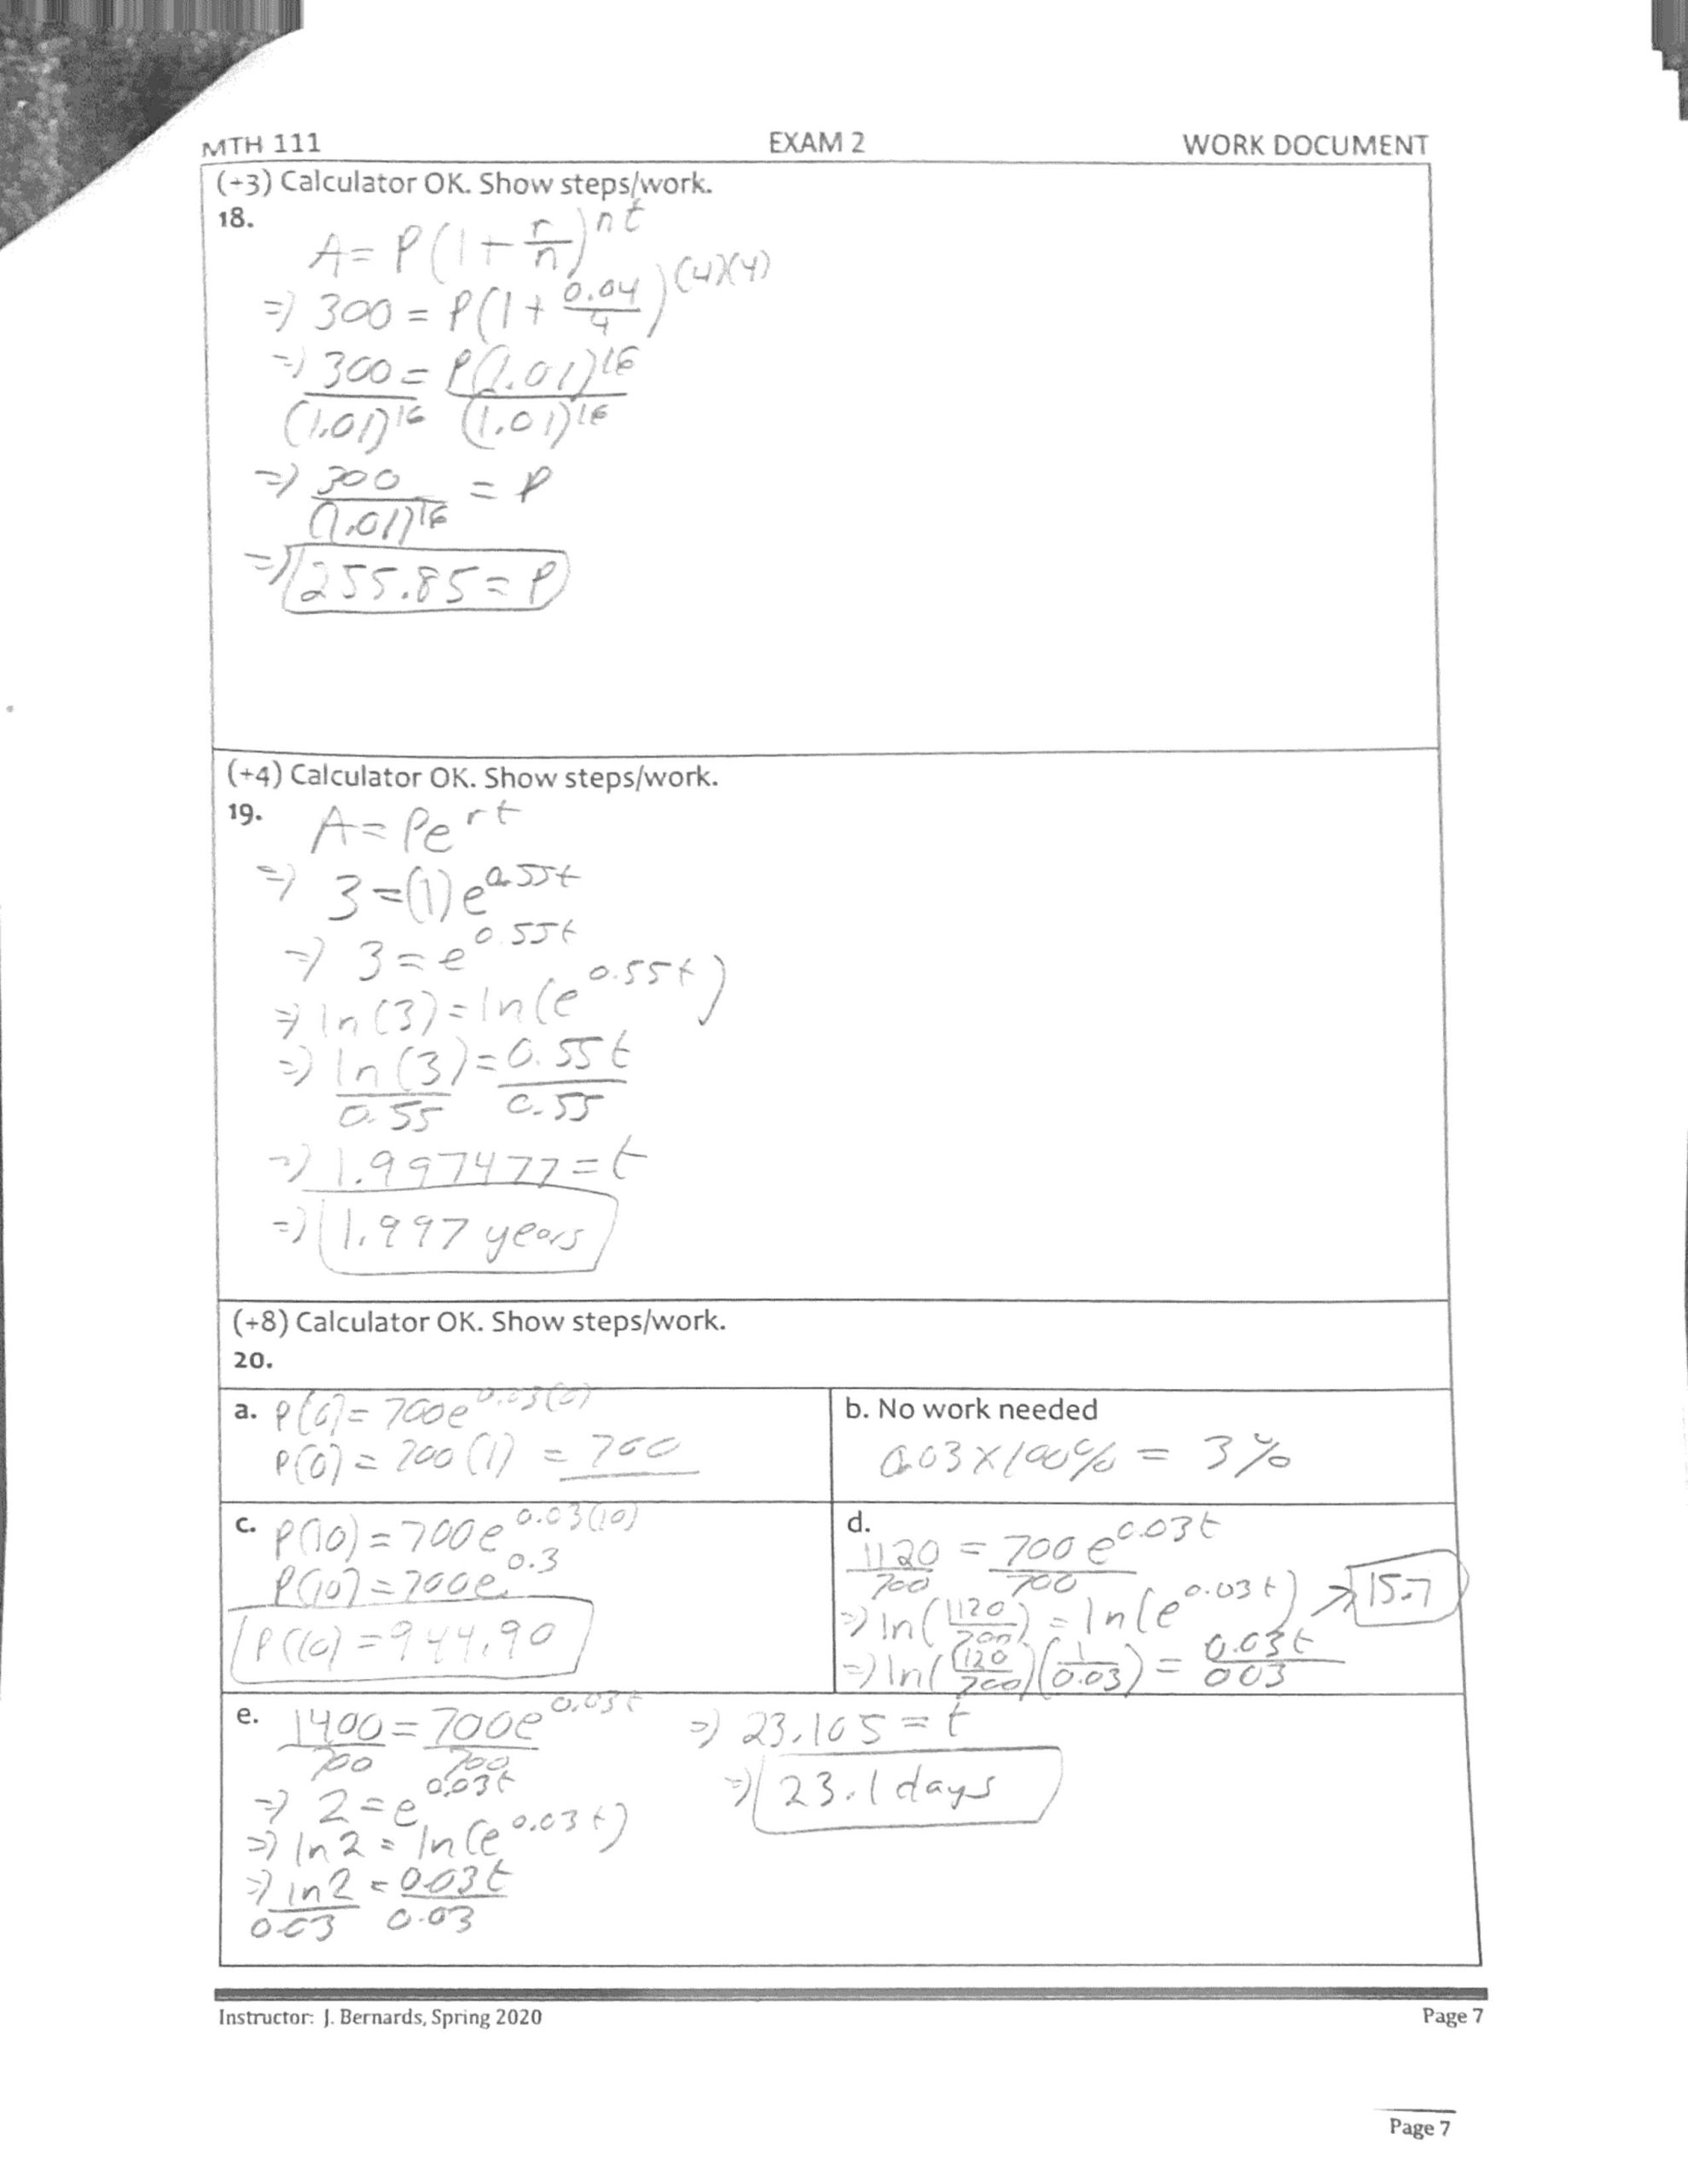 MTH 111 EXAM 2 WORK DOCUMENT
(+3) Calculator OK. Show steps/work.
18.
A = P(1 + r/n)^nt
=> 300 = P(1 + 0.04/4)^(4)(4)
=> 300/(1.01)^16 = P(1.01)^16/(1.01)^16
=> 300/(1.01)^16 = P
=> 255.85 = P
(+4) Calculator OK. Show steps/work.
19. A = Pe^rt
=> 3 = (1)e^0.55t
=> 3 = e^0.55t
=> ln(3) = ln(e^0.55t)
=> ln(3)/0.55 = 0.55t/0.55
=> 1.997477 = t
=> 1.997 years
(+8) Calculator OK. Show steps/work.
20.
a. P(0) = 700e^0.03(0)
P(0) = 700(1) = 700
b. No work needed
0.03 x 100% = 3%
c. P(10) = 700e^0.03(10)
P(10) = 700e^0.3
P(10) = 944.90
d.
1120/700 = 700e^0.03t/700
=> ln(1120/700) = ln(e^0.03t)
=> ln(1120/700)(1/0.03) = 0.03t/003
→ 15.7
e. 1400/700 = 700e^0.03t/700
=> 2 = e^0.03t
=> ln2 = ln(e^0.03t)
=> ln2/0.03 = 0.03t/0.03
=> 23.105 = t
=> 23.1 days
Instructor: J. Bernards, Spring 2020 Page 7
Page 7